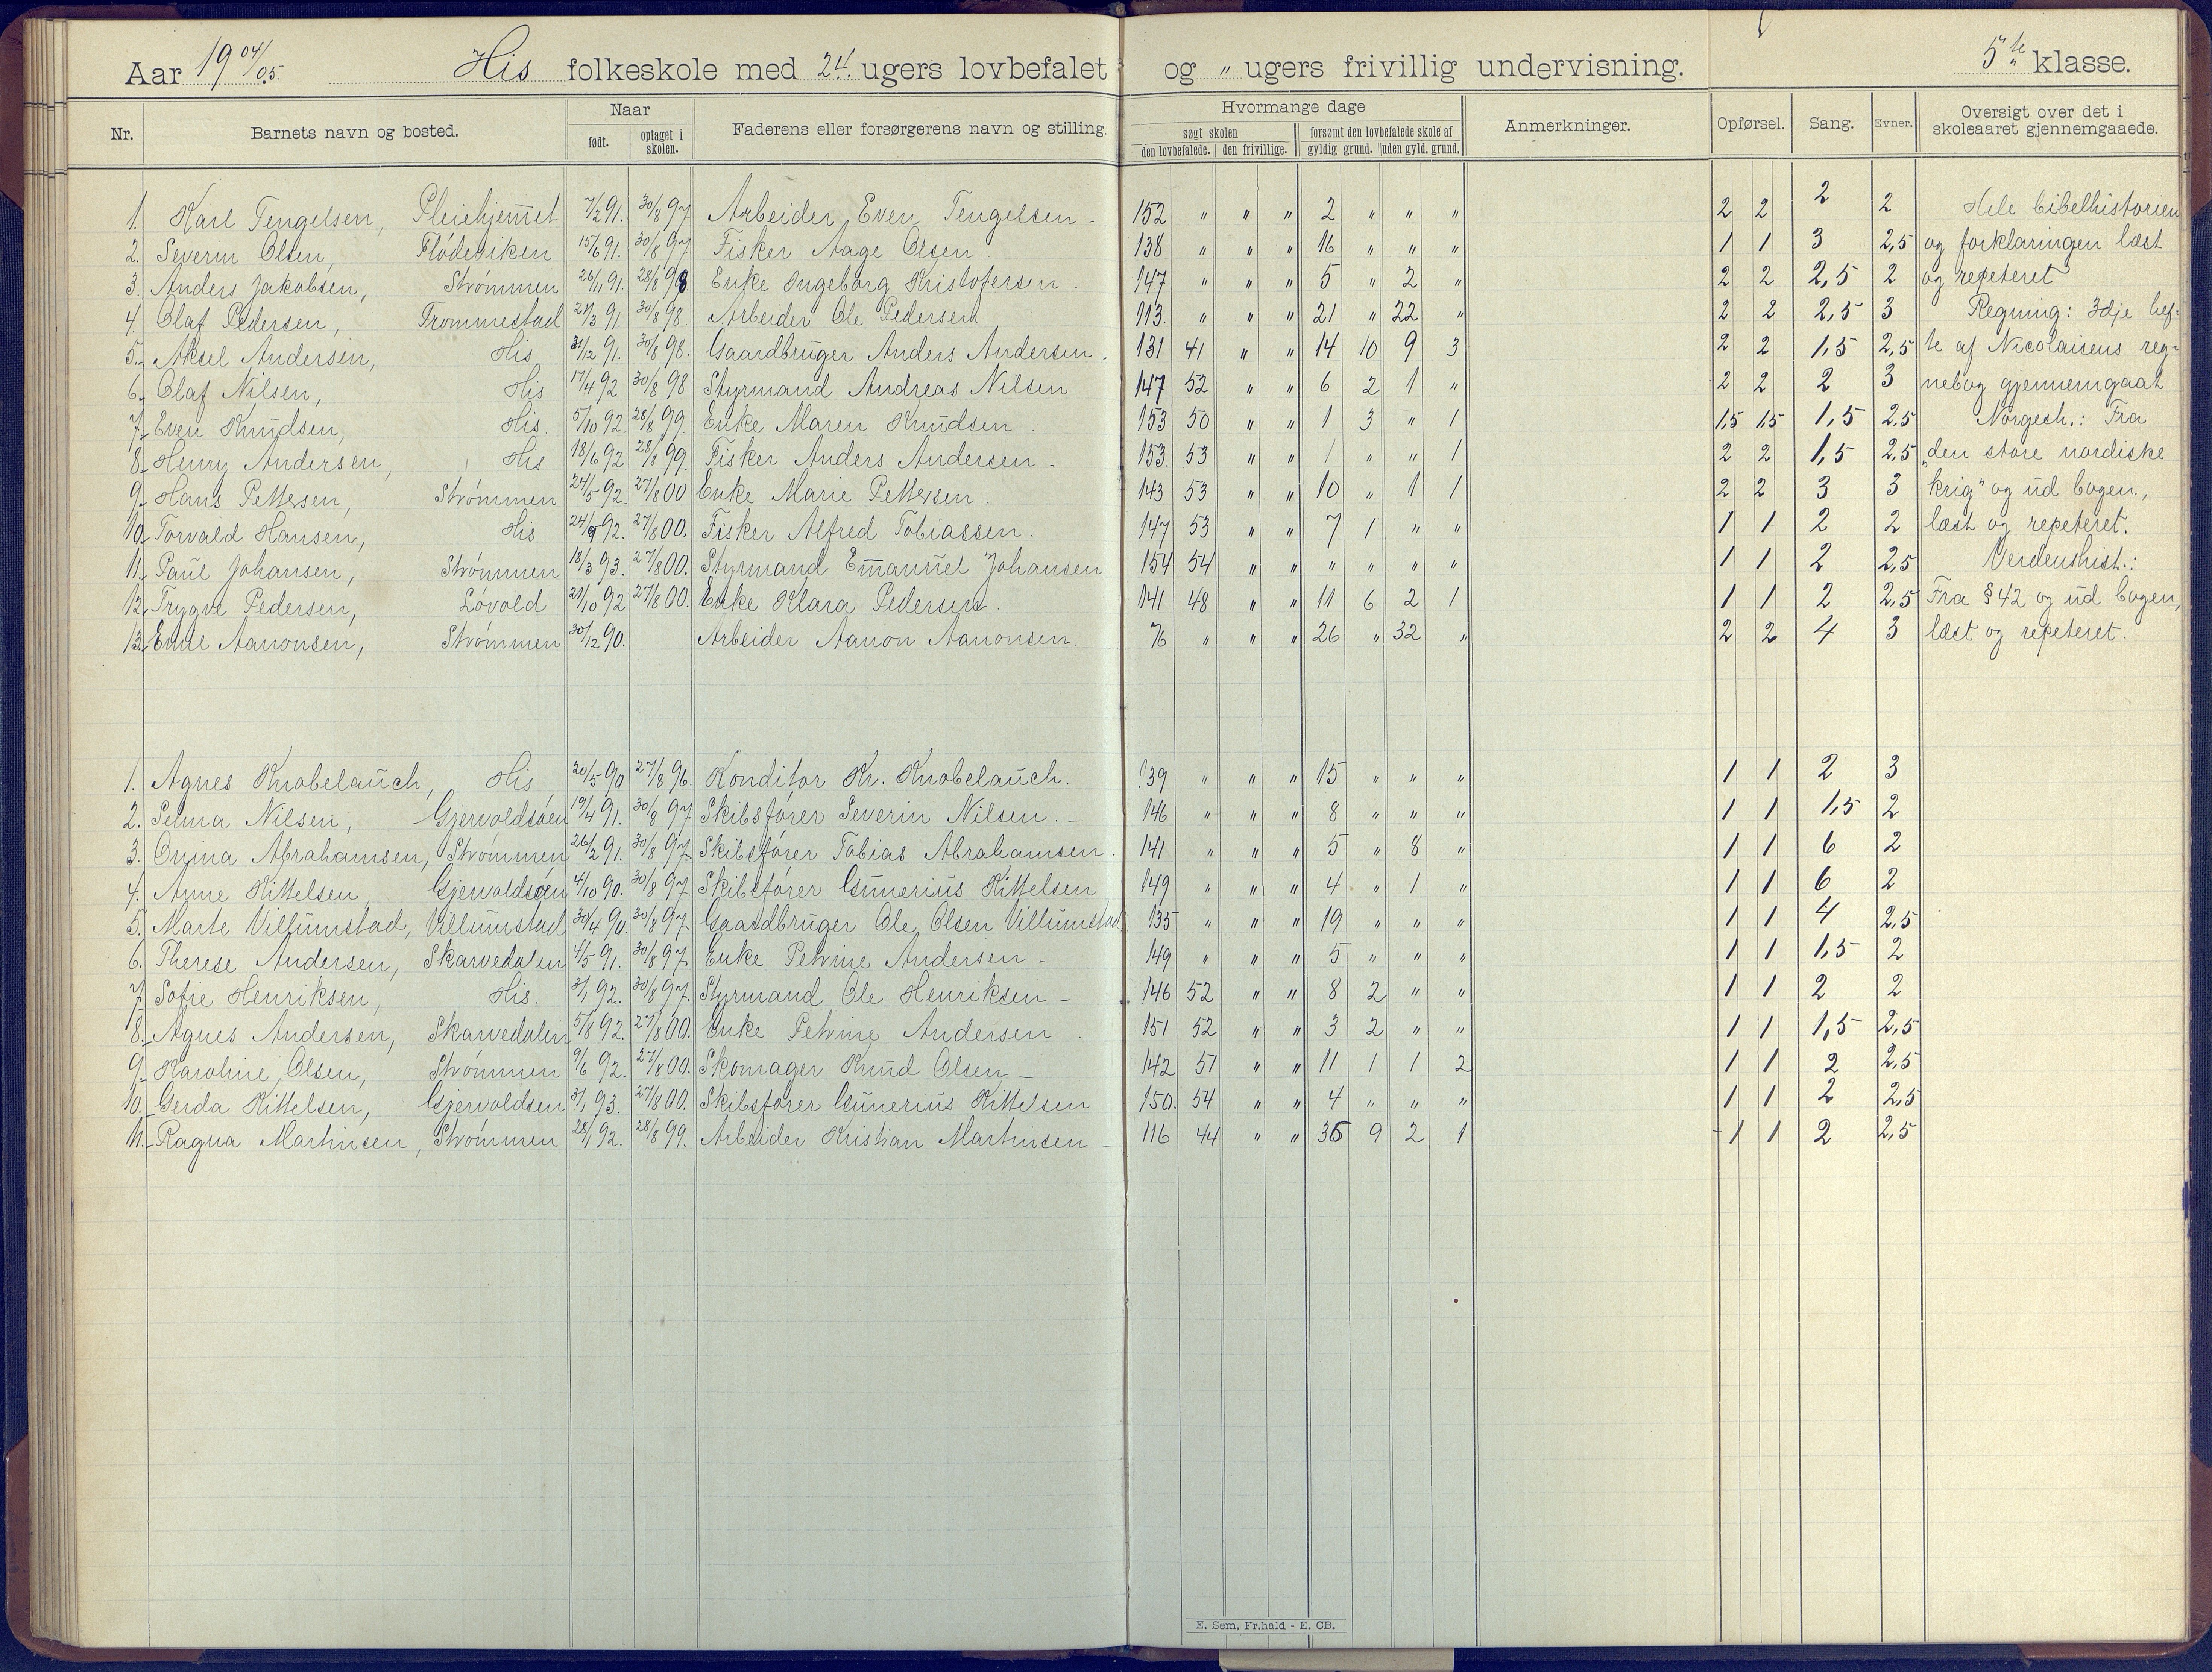 Aar 19 04/05. His folkeskole med 24. ugers lovbefalet og " ugers frivillig undervisning. 5te klasse.
Nr. Barnets navn og bosted. Naar født. optaget i skolen. Faderens eller forsørgerens navn og stilling. Hvormange dage søgt skolen den lovbefalede. den frivillige. forsømt den lovbefalede skole af gyldig grund. uden gyld. grund. Anmerkninger. Opførsel. Sang. Evner. Oversigt over det i skoleaaret gjennemgaaede.
1. Karl Tengelsen, Pleiehjemet 7/2 91. 30/8 97 Arbeider Even Tengelsen - 152 " " " 2 " " " 2 2 2 2 Hele bibelhistorien
2. Severin Olsen, Flødeviken 15/6 91. 30/8 97 Fisker Aage Olsen 138 " " " 16 " " " 1 1 3 2,5 og forklaringen læst
3. Anders Jakobsen, Strømmen 26/11 91. 28/8 98 Enke Ingeborg Kristofersen. 147 " " " 5 " 2 " 2 2 2,5 2 og repeteret
4. Olaf Pedersen, Trommestad 21/3 91. 30/8 98. Arbeider Ole Pedersen 113. " " " 21 " 22 " 2 2 2,5 3 Regning: 3dje hef-
5. Aksel Andersen, His 31/12 91. 30/8 98. Gaardbruger Anders Andersen. 131 41 " " 14 10 9 3 2 2 1,5 2,5 te af Nicolaisens reg-
6. Olaf Nilsen, His 17/4 92 30/8 98 Styrmand Andreas Nilsen 147 52 " " 6 2 1 " 2 2 2 3 nebog gjennemgaat
7. Even Knudsen, His. 5/10 92. 28/8 99. Enke Maren Knudsen. 153 50 " " 1 3 " 1 1,5 1,5 1,5 2,5 Norgesh.: Fra
8. Henry Andersen, His 18/6 92 28/8 99. Fisker Anders Andersen. 153. 53 " " 1 " " 1 2 2 1,5 2,5 "den store nordiske
9. Hans Pettersen, Strømmen 24/5 92. 27/8 00 Enke Marie Pettersen. 143 53 " " 10 " 1 1 2 2 3 3 krig" og ud bogen.,
10. Torvald Hansen, His 24/9 92. 27/8 00. Fisker Alfred Tobiassen. 147 53 " " 7 1 " " 1 1 2 2 læst og repeteret.
11. Paul Johansen, Strømmen 18/3 93. 27/8 00. Styrmand Emanuel Johansen 154 54 " " " " " " 1 1 2 2,5 Verdenshist.:
12. Trygve Pedersen, Løvold 21/10 92 27/8 00. Enke Klara Pedersen. 141 48 " " 11 6 2 1 1 1 2 2,5 Fra § 42 og ud bogen,
13. Emil Aanonsen, Strømmen 30/12 90. Arbeider Aanon Aanonsen. 76 " " " 26 " 32 " 2 2 4 3 læst og repeteret.
1. Agnes Knobelauch, His 20/5 90 27/8 96. Konditor Kr. Knobelauch. 139 " " " 15 " " " 1 1 2 3
2. Selma Nilsen, Gjervoldsøen 19/4 91. 30/8 97 Skibsfører Severin Nilsen. - 146 " " " 8 " " " 1 1 1,5 2
3. Onina Abrahamsen, Strømmen 26/2 91. 30/8 97. Skibsfører Tobias Abrahamsen. 141 " " " 5 " 8 " 1 1 6 2
4. Anne Kittelsen Gjervoldsøen 4/10 90. 30/8 97. Skibsfører Gunerius Kittelsen 149 " " " 4 " 1 " 1 1 6 2
5. Marte Villumstad, Villumstad 30/4 90. 30/8 97. Gaardbruger Ole Olsen Villumstad 135 " " " 19 " " " 1 1 4 2,5
6. Therese Andersen, Skarvedalen 4/5 91. 30/8 97. Enke Petrine Andersen - 149 " " " 5 " " " 1 1 1,5 2
7. Sofie Henriksen, His. 3/1 92. 30/8 97. Styrmand Ole Henriksen - 146 52 " " 8 2 " " 1 1 2 2
8. Agnes Andersen, Skarvedalen 5/8 92. 27/8 00. Enke Petrine Andersen. 151 52 " " 3 2 " " 1 1 1,5 2,5
9. Karoline Olsen, Strømmen 9/6 92. 27/8 00. Skomager Knud Olsen - 142 51 " " 11 1 1 2 1 1 2 2,5
10. Gerda Kittelsen, Gjervoldsen 3/1 93. 27/8 00. Skibsfører Gunerius Kittelsen 150. 54 " " 4 " " " 1 1 2 2,5
11. Ragna Martinsen, Strømmen 28/1 92. 28/8 99. Arbeider Kristian Martinsen - 116 44 " " 36 9 2 1 1 1 2 2,5
E. Sem, Fr.hald - E. CB.